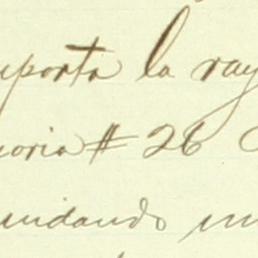 uporta la ray
noria # 26
undando